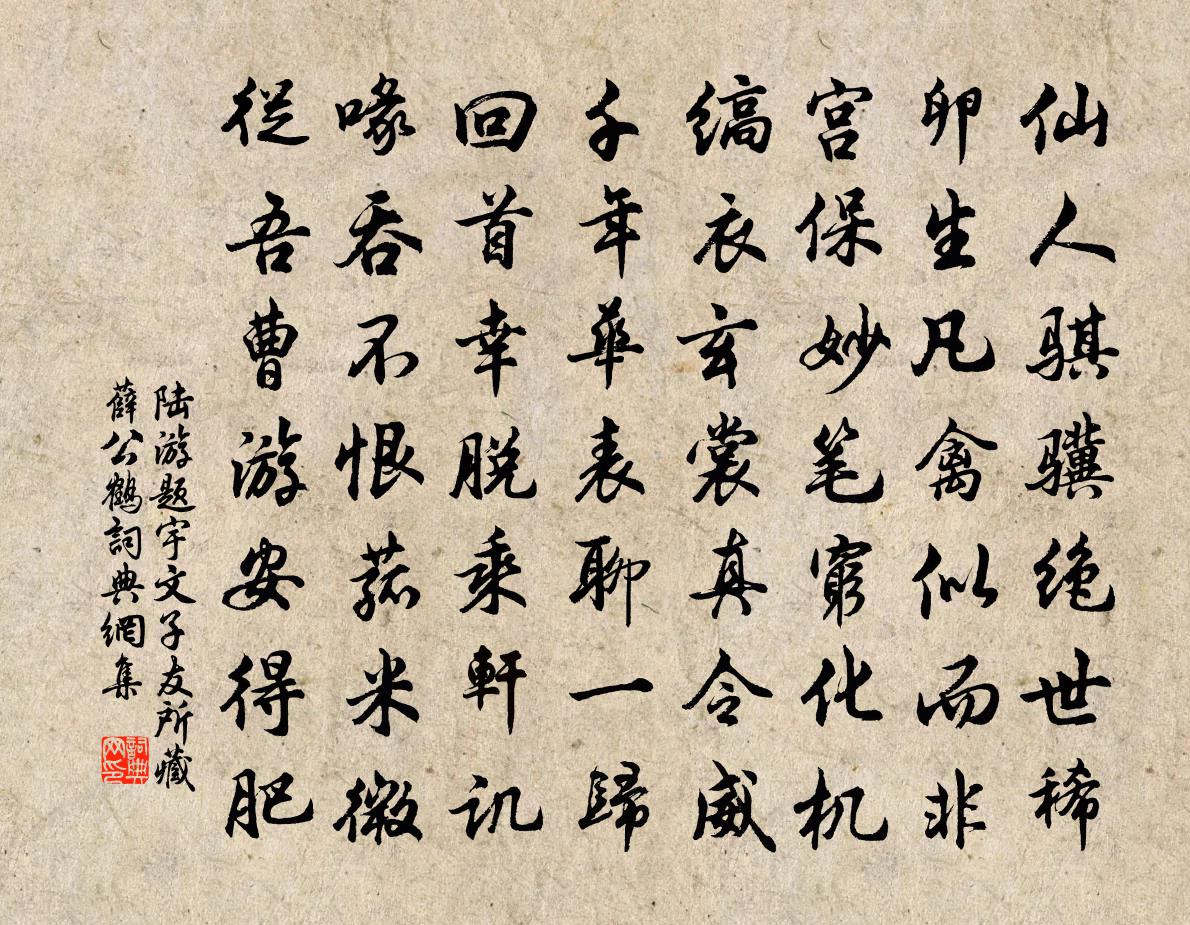 仙人骐骥绝世稀
卵生凡禽似而非
宫保妙笔穷化机
缟衣玄裳真令威
千年华表聊一歸
回首幸脱乘軒讥
喙吞不恨菰米微
從吾曹游安得肥
陆游题宇文子友所藏
薛公鹤詞典網集
詞典网印